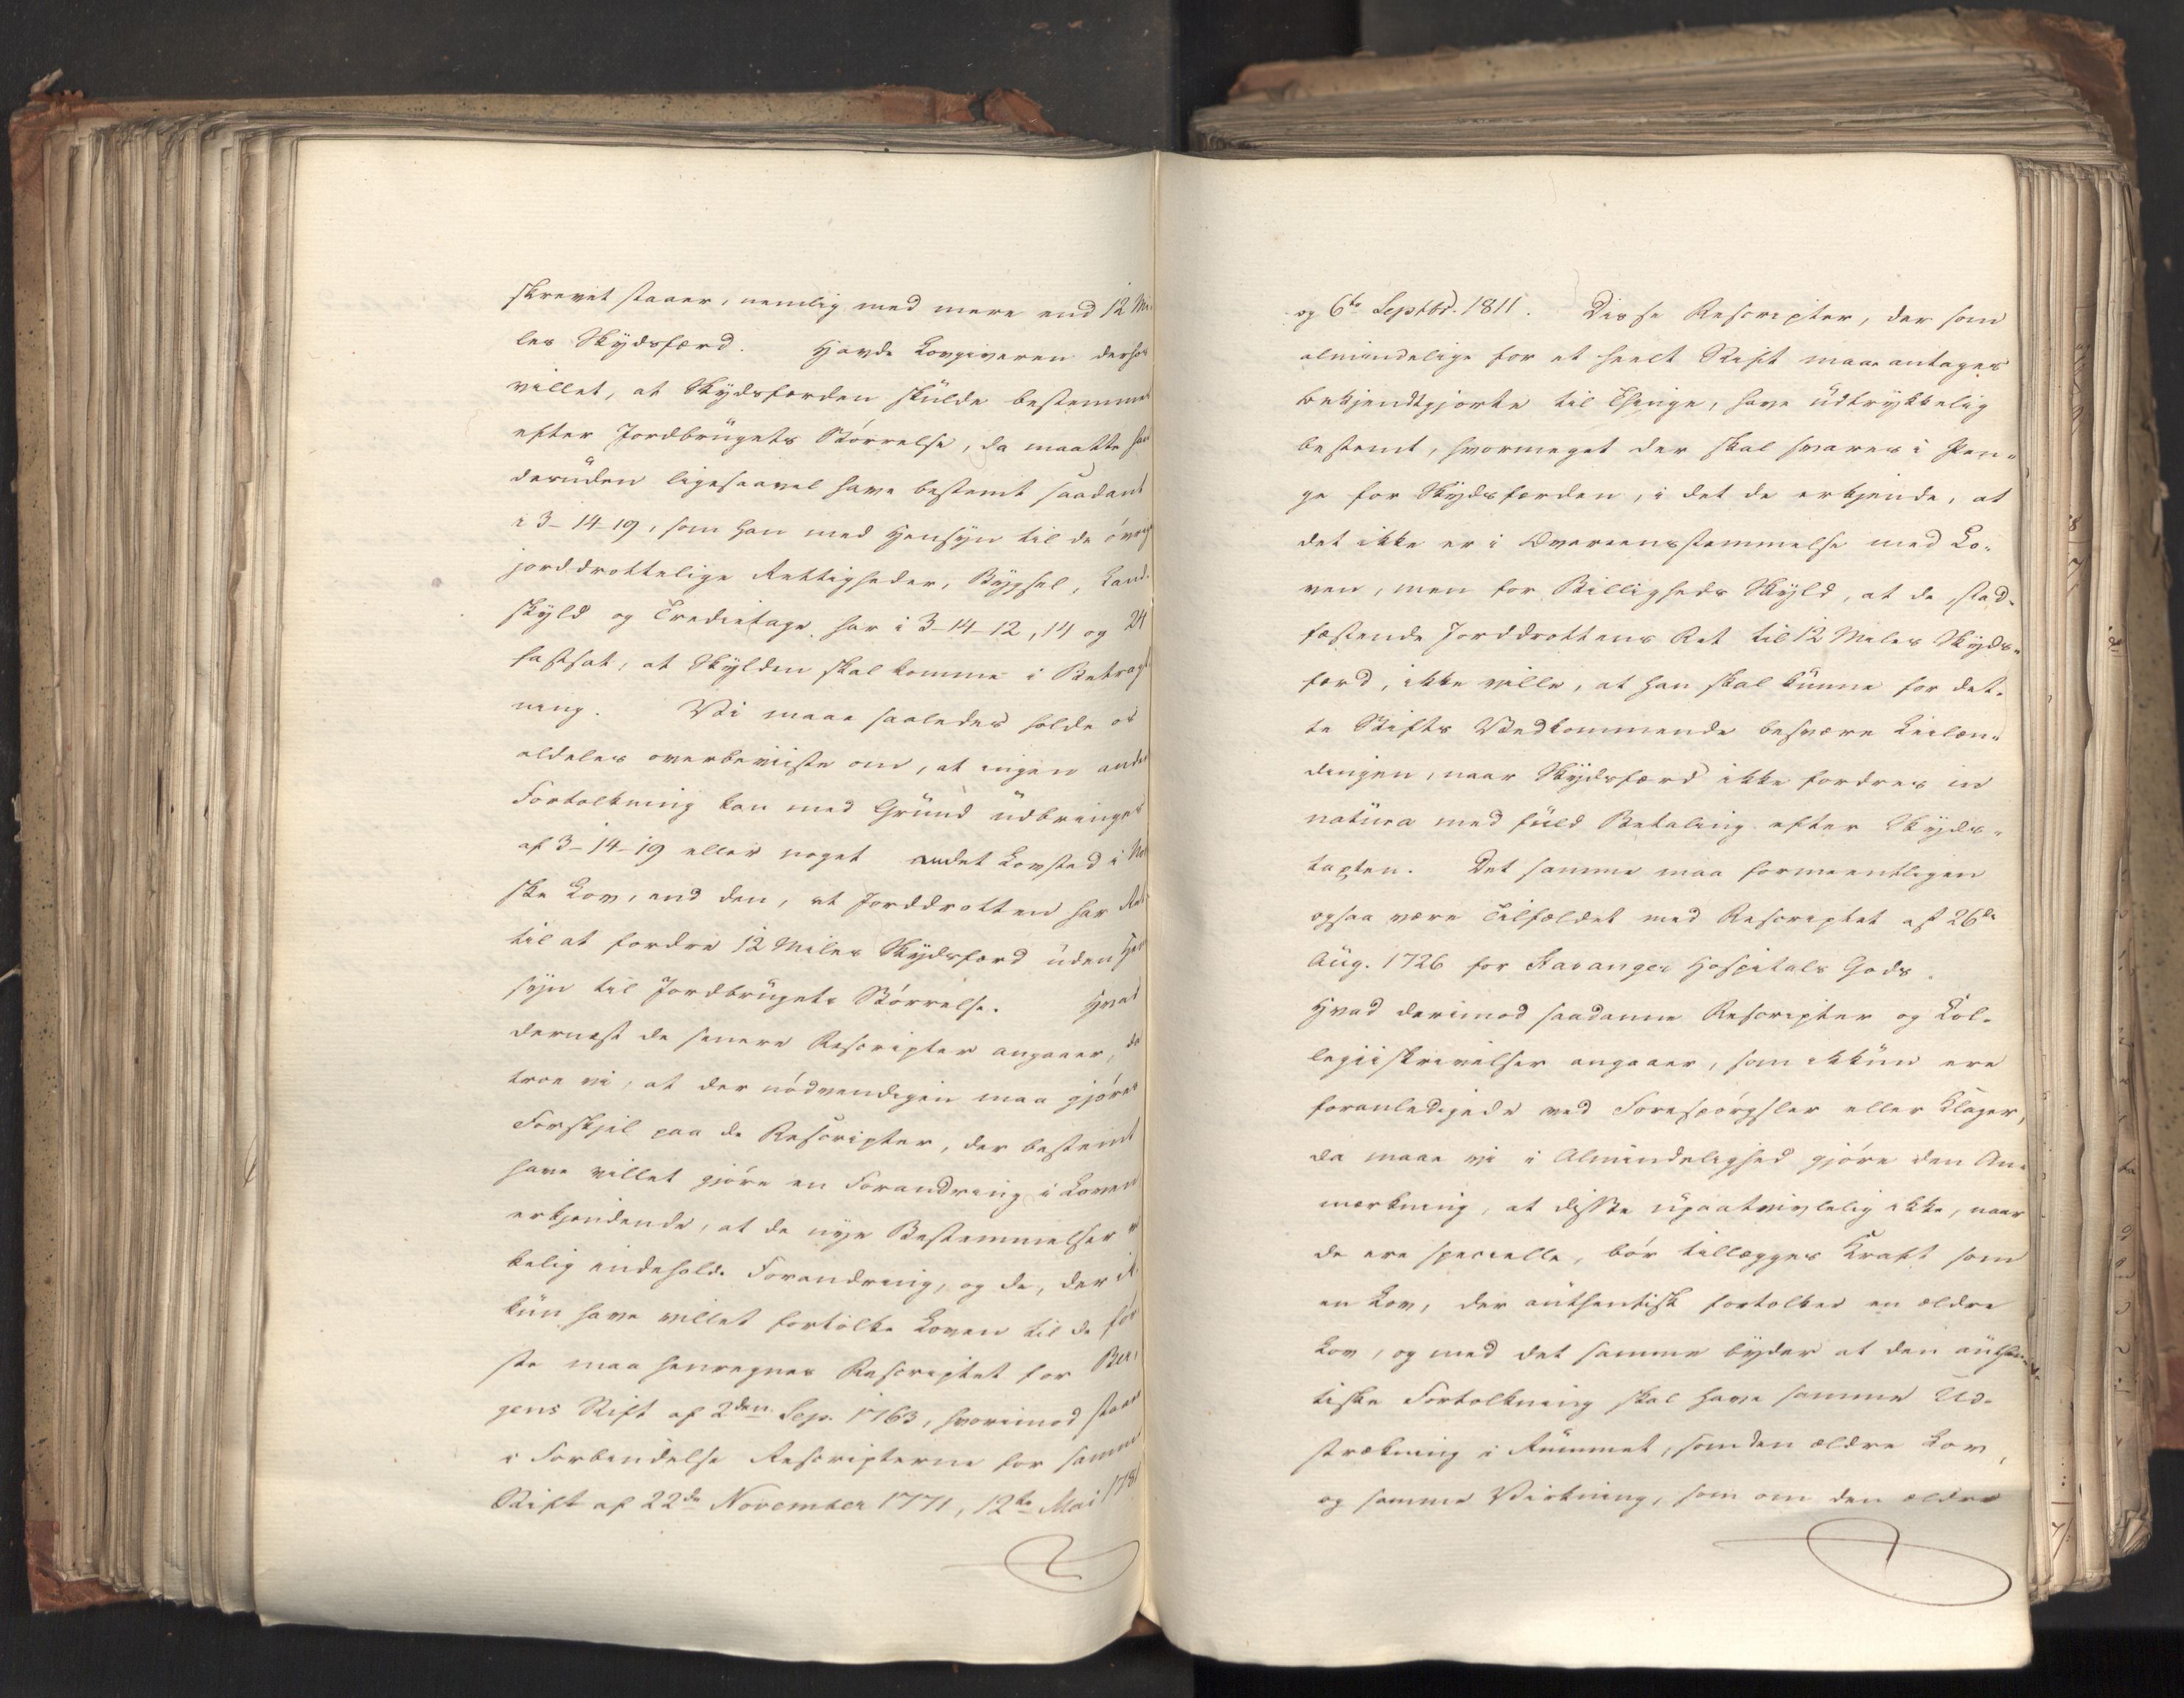 skrevet staaer, nemlig med mere end 12 Mi-
les Skydsfærd. Havde Lovgiveren derhos
villet, at Skydsfærden skulde bestemmes
efter Jordbrugets Størrelse, da maatte han
desuden ligesaavel have bestemt saadant
i 3-14-19, som han med Hensyn til de øvrige
jorddrottelige Rettigheder, Bygsel, Land-
skyld og Tredietage har i 3-14-12, 14 og 24
fastsat, at Skylden skal komme i Betragt
ning. Vi maae saaledes holde os
aldeles overbeviiste om, at ingen anden
Fortolkning kan med Grund udbringes
af 3-14-19 eller noget andet Lovsted i Nor
ske Lov, end den, at Jorddrotten har Ret
til at fordre 12 Miles Skydsfærd uden Hen
syn til Jordbrugets Størrelse. Hvad
dernæst de senere Rescripter angaaer, da
troe vi, at der nødvendigen maa gjøres
Forskjel paa de Rescripter, der bestemt
have villet gjøre en Forandring i Loven
erkjendende, at de nye Bestemmelser vir
kelig indeholde Forandring, og de, der ik
kun have villet fortolke Loven til de før
ste maa henregnes Rescriptet for Ber-
gens Stift af 2den Sep. 1763, hvorimod staaer
i Forbindelse Rescripterne for samme
Stift af 22de November 1771, 12te Mai 1781
og 6te Septbr. 1811. Disse Rescripter, der som
almindelige for et heelt Stift maae antages
bekjendtgjorte til Thinge, have udtrykkelig
bestemt, hvormeget der skal svares i Pen-
ge for Skydsfærden, i det de erkjende, at
det ikke er i Overeensstemmelse med Lo-
ven, men for Billigheds Skyld, at de, stad-
fæstende Jorddrottens Ret til 12 Miles Skyds-
færd, ikke ville, at han skal kunne for det-
te Stifts Vedkommende besvære Leilæn-
dingen, naar Skydsfærd ikke fordres in
natura med fuld Betaling efter Skyds-
taxten. Det samme maa formeentligen
ogsaa være Tilfældet med Rescriptet af 26de
Aug. 1726 for Stavanger Hospitals Gods.
Hvad derimod saadanne Rescripter og Col-
legiiskrivelser angaaer, som ikkun ere
foranledigede ved Forespørgsler eller Klager,
da maae vi i Almindelighed gjøre den An-
mærkning, at disse upaatvivlelig ikke, naar
de ere specielle, bør tillægges Kraft som
en Lov, der authentisk fortolker en ældre
Lov, og med det samme byder at den authen-
tiske Fortolkning skal have samme Ud-
strækning i Rummet, som den ældre Lov,
og samme Virkning, som om den ældre